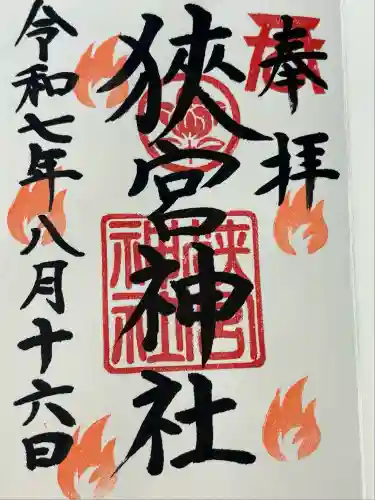 奉拝
狹宮神社
令和七年八月十六日
狭宮
神社